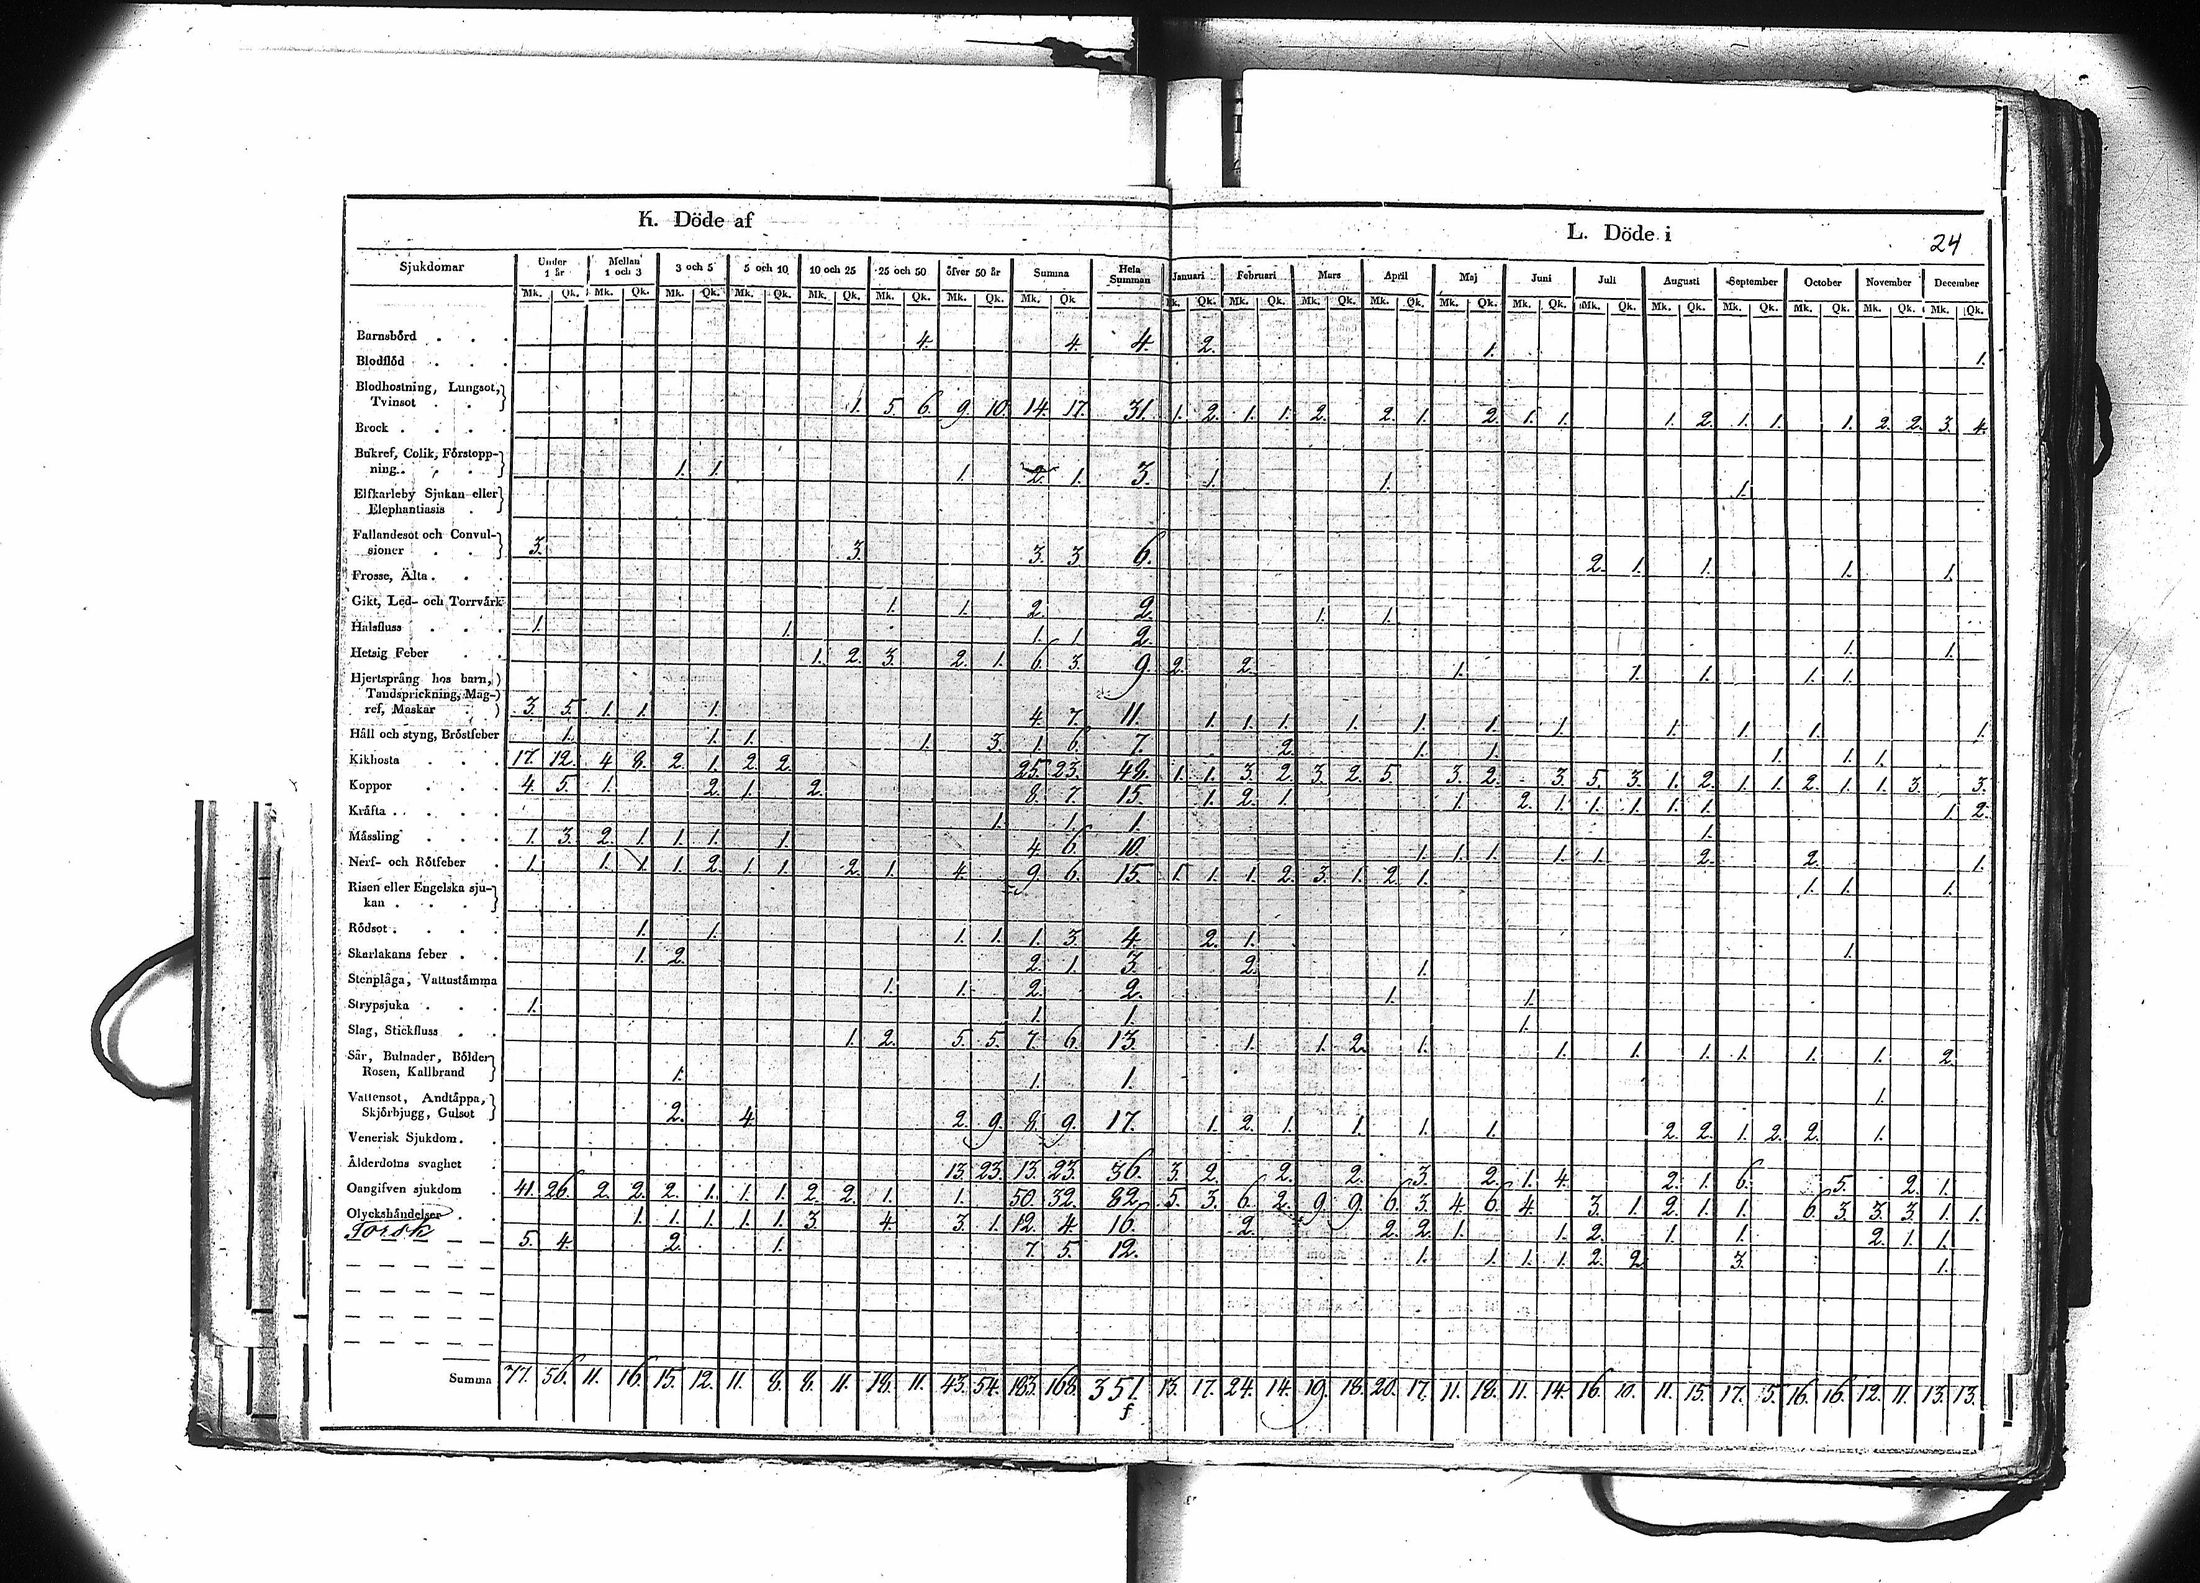 K. Döde af
L. Döde i
24
Sjukdomar Under 1 år Mellan 1 och 3 3 och 5 5 och 10 10 och 25 25 och 50 öfver 50 år Summa Hela Summan Januari Februari Mars April Maj Juni Juli Augusti September October November December
Mk. Qk. Mk. Qk. Mk. Qk. Mk. Qk. Mk. Qk. Mk. Qk. Mk. Qk. Mk. Qk Mk. Qk. Mk. Qk. Mk. Qk. Mk. Qk. Mk. Qk. Mk. Qk. Mk. Qk. Mk. Qk. Mk. Qk. Mk. Qk. Mk. Qk. Mk. Qk.
Barnsbörd . . . 4. 4. 4. 2. 1. 1.
Blodflöd . . .
Blodhostning, Lungsot,
Tvinsot . . 1. 5. 6. 9. 10. 14. 17. 31. 1. 2. 1. 1. 2. 2. 1. 2. 1. 1. 1. 2. 1. 1. 1. 2. 2. 3. 4.
Brock . . . .
Bukref, Colik, Förstopp-
ning . . . 1. 1. 1. 2. 1. 3. 1. 1. 1.
Elfkarleby Sjukan eller
Elephantiasis .
Fallandesot och Convul-
sioner . . 3. 3. 3. 3 6. 2. 1. 1. 1. 1.
Frosse, Älta . . .
Gikt, Led- och Torrvärk 1. 1. 2. 2. 1. 1.
Halsfluss . . . 1. 1. 1. 1. 2. 1. 1.
Hetsig Feber . . 1. 2. 3. 2. 1. 6. 3. 9. 2. 2. 1. 1. 1. 1. 1.
Hjertsprång hos barn,
Tandsprickning, Mag-
ref, Maskar . 3. 5. 1. 1. 1. 4. 7. 11. 1. 1. 1. 1. 1. 1. 1. 1. 1. 1. 1.
Håll och styng, Bröstfeber 1. 1. 1. 1. 3. 1. 6. 7. 2. 1. 1. 1. 1. 1.
Kikhosta . . . 17. 12. 4 8. 2. 1. 2. 2. 25. 23. 48. 1. 1. 3. 2. 3. 2. 5. 3. 2. 3. 5. 3. 1. 2. 1. 1. 2. 1. 1. 3. 3.
Koppor . . . 4. 5. 1. 2. 1. 2. 8. 7. 15. 1. 2. 1. 1. 2. 1. 1. 1. 1. 1. 1. 2.
Kräfta . . . . 1. 1. 1. 1.
Mässling . . . 1. 3. 2. 1. 1. 1. 1. 4. 6. 10. 1. 1. 1. 1. 1. 2. 2. 1.
Nerf- och Rötfeber . 1. 1. 1. 1. 2. 1. 1. 2. 1. 4. 9. 6. 15. 1. 1. 1. 2. 3. 1. 2. 1. 1. 1. 1.
Risen eller Engelska sju-
kan . . .
Rödsot . . . . 1. 1. 1. 1. 1. 3. 4. 2. 1. 1.
Skarlakans feber . . 1. 2. 2. 1. 3. 2. 1.
Stenplåga, Vattustämma 1. 1. 2. 2. 1. 1.
Strypsjuka . . . 1. 1. 1. 1.
Slag, Stickfluss . . 1. 2. 5. 5. 7. 6. 13. 1. 1. 2. 1. 1. 1. 1. 1. 1. 1. 2.
Sår, Bulnader, Bölder
Rosen, Kallbrand 1. 1. 1. 1.
Vattensot, Andtäppa,
Skjörbjugg, Gulsot 2. 4. 2. 9. 8. 9. 17. 1. 2. 1. 1. 1. 1. 2. 2. 1. 2. 2. 1.
Venerisk Sjukdom . .
Ålderdoms svaghet . 13. 23. 13. 23. 36. 3. 2. 2. 2. 3. 2. 1. 4. 2. 1. 6. 5. 2. 1.
Oangifven sjukdom . 41. 26. 2. 2. 2. 1. 1. 1. 2. 2. 1. 1. 50. 32. 82. 5. 3. 6. 2. 9 9. 6. 3. 4. 6. 4. 3. 1. 2. 1. 1. 6. 3. 3. 3. 1. 1.
Olyckshändelser . . 1. 1. 1. 1. 1. 3. 4. 3. 1. 12. 4. 16. 2. 2. 2. 1. 1. 2. 1. 1. 2. 1. 1.
Torsk 5. 4. 2. 1. 7. 5. 12. 1. 1. 1. 1. 2. 2. 3. 1.
Summa 77. 56. 11. 16. 15. 12. 11. 8. 8. 11. 18. 11. 43. 54. 183. 168. 351. 13. 17. 24. 14. 19. 18. 20. 17. 11. 18. 11. 14. 16. 10. 11. 15. 17. 5. 16. 16. 12. 11. 13. 13.